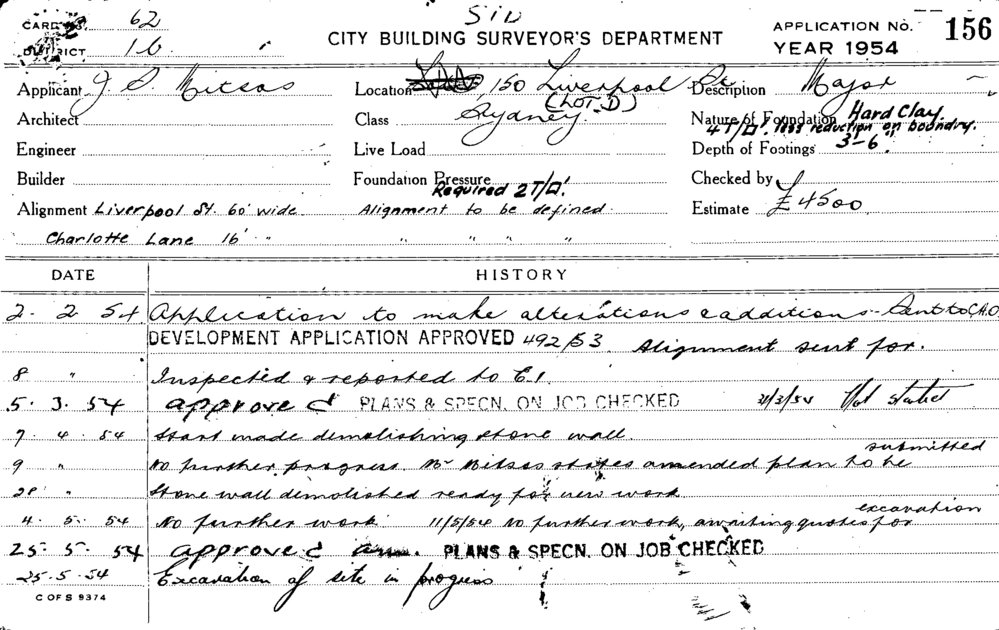 CARD No. 62 SID
CITY BUILDING SURVEYOR'S DEPARTMENT
APPLICATION No. 156
DISTRICT 16
YEAR 1954
Applicant J. S. Mitsos Location 150 Liverpool St. Description Major
(LOT. D)
Architect Class Sydney Nature of Foundation Hard Clay.
4T/□'. less reduction on boundry.
Engineer Live Load Depth of Footings 3-6'
Builder Foundation Pressure Checked by
Required 2T/□'.
Alignment Liverpool St. 60' wide. Alignment to be defined. Estimate £4500
Charlotte Lane 16' " " " " "
DATE HISTORY
2. 2 54 Application to make alterations & additions - Sent to C.H.O.
DEVELOPMENT APPLICATION APPROVED 492/53 Alignment sent for.
8 " Inspected & reported to E.1.
5. 3. 54 approved PLANS & SPECN. ON JOB CHECKED /3/54 Not started
7. 4. 54 Start made demolishing stone wall.
9 " No further progress. Mr Mitsos states amended plan to be submitted
28 " Stone wall demolished ready for new work
4. 5. 54 No further work 11/5/54 No further work, awaiting quotes for excavation
25. 5. 54 approved am. PLANS & SPECN. ON JOB CHECKED
25.5.54 Excavation of site in progress
C OF S 9374